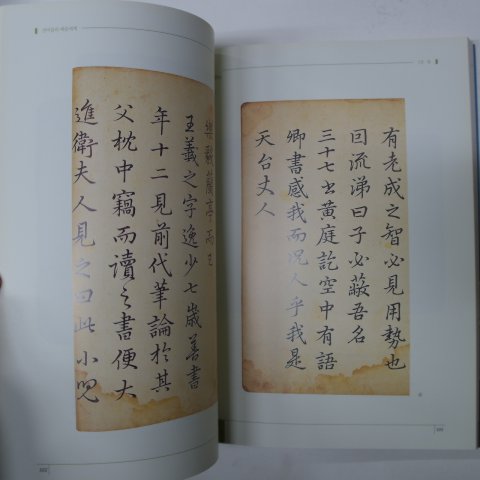 樂毅蘭亭而
王羲之字逸少七歲善書
年十二見前代筆論於其
父枕中竊而讀之書便大
進衛夫人見之曰此小兒
有老成之智必見用勢也
因流涕曰子必蔽吾名
三十七書黃庭訖空中有語
卿書感我而況人乎我是
天台丈人